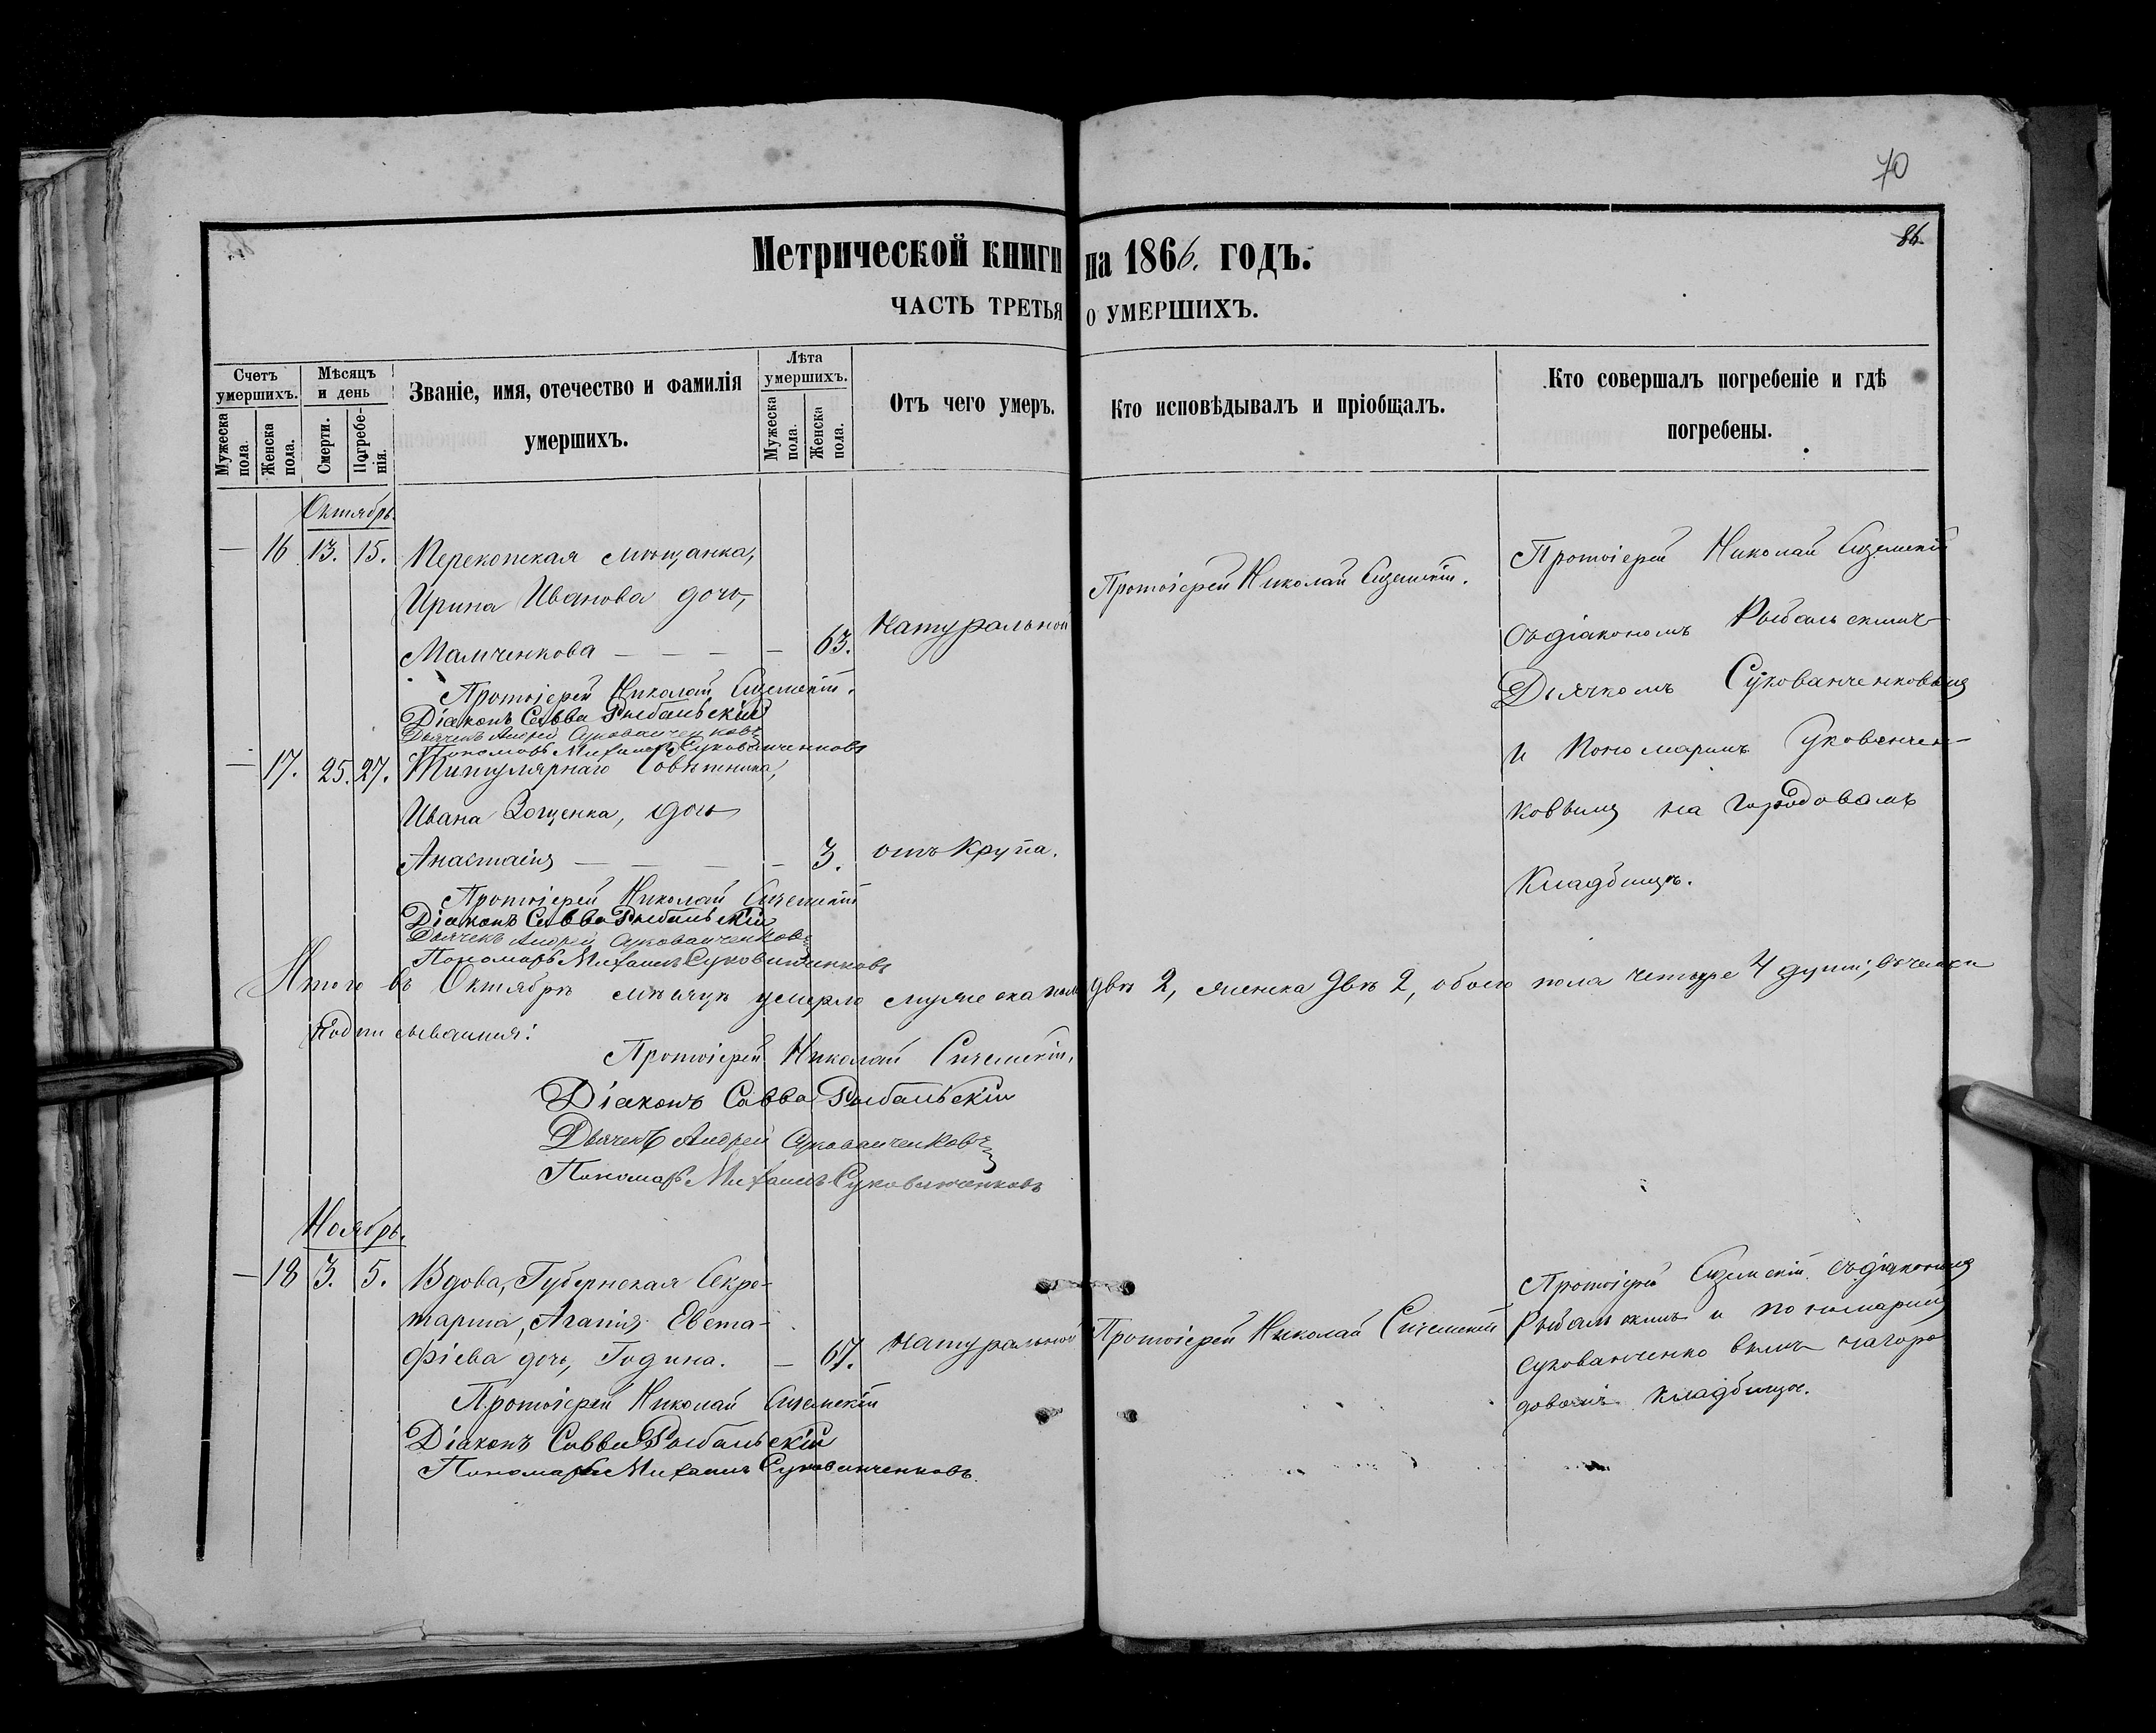 70
86.
Метрической книги на 1866. годъ.
ЧАСТЬ ТРЕТЬЯ О УМЕРШИХЪ.
Счетъ умершихъ.
Мужеска пола.
Женска пола.
Мѣсяцъ и день
Смерти.
Погребенія.
Званіе, имя, отечество и фамилія умершихъ.
Лѣта умершихъ.
Мужеска пола.
Женска пола.
Отъ чего умеръ.
Кто исповѣдывалъ и пріобщалъ.
Кто совершалъ погребеніе и гдѣ погребены.
Октябрь.
— 16 13. 15. Перекопская мѣщанка,
Ирина Иванова дочь,
Мамченкова — — — — 63. Натуральной
Протоіерей Николай
Протоіерей Николай
съ діакономъ Рыбальскимъ
Дьячкомъ Сукованченковымъ
и Пономаримъ Сукованчен-
ковымъ на Городовомъ
Кладбищѣ.
Протоіерей Николай
Діаконъ Савва Рыбальскій
Дьячекъ Андрей Сукованченковъ
Пономарь Михаилъ Сукованченковъ
— 17. 25. 27. Титулярнаго Совѣтника,
Ивана Зощенка, дочь
Анастасія — — — — 3. отъ Крупа.
Протоіерей Николай
Діаконъ Савва Рыбальскій
Дьячекъ Андрей Сукованченковъ
Пономарь Михаилъ Сукованченковъ
Итого въ Октябрѣ мѣсяцѣ умерло мужеска пола двѣ 2, женска двѣ 2, обоего пола четыре 4 души;
Подписываемся:
Протоіерей Николай
Діаконъ Савва Рыбальскій
Дьячекъ Андрей Сукованченковъ
Пономарь Михаилъ Сукованченковъ
Ноябрь.
— 18 3. 5. Вдова, Губернская Секре-
тарша, Агапія Евста-
фіева дочь, Година. — 67. натуральной
Протоіерей Николай
Протоіерей съ діакономъ
Рыбальскимъ и пономаримъ
Сукованченковымъ на горо
довомъ кладбищѣ.
Протоіерей Николай
Діаконъ Савва Рыбальскій
Пономарь Михаилъ Сукованченковъ.